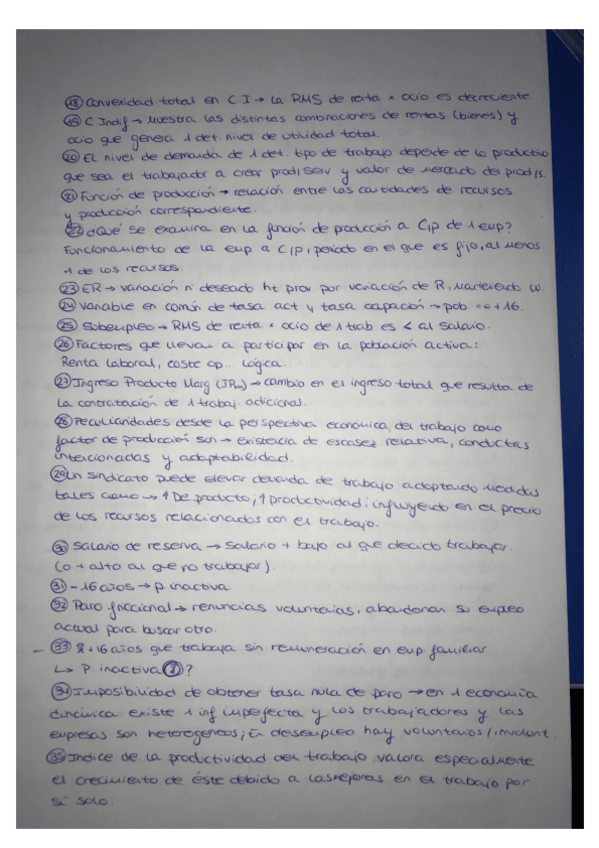 (18) Convexidad total en C I → La RMS de renta x ocio es decreciente
(19) C Indif → Muestra las distintas combinaciones de rentas (bienes) y
ocio que genera 1 det. nivel de utilidad total.
(20) El nivel de demanda de 1 det. tipo de trabajo depende de lo productivo
que sea el trabajador a crear prod/serv y valor de mercado del prod/s.
(21) Función de producción → relación entre las cantidades de recursos
y producción correspondiente.
(22) ¿Qué se examina en la función de producción a C/p de 1 emp?
Funcionamiento de la emp a C/P, periodo en el que es fijo, al menos
1 de los recursos.
(23) ER → variación nº deseado ht prov por variación de R, manteniendo w.
(24) Variable en común de tasa act y tasa ocupación → pob = o + 16.
(25) Subempleo → RMS de renta x ocio de 1 trab es < al salario.
(26) Factores que llevan a participar en la población activa:
Renta laboral, coste op... lógica.
(27) Ingreso Producto Marg (IPm) → cambio en el ingreso total que resulta de
la contratación de 1 trabaj. adicional.
(28) Peculiaridades desde la perspectiva económica, del trabajo como
factor de producción son → existencia de escasez relativa, conductas
intencionadas y adaptabilidad.
(29) Un sindicato puede elevar demanda de trabajo adoptando medidas
tales como → ↑ De producto; ↑ productividad; influyendo en el precio
de los recursos relacionados con el trabajo.
(30) Salario de reserva → Salario + bajo al que decido trabajar.
(o + alto al que no trabajar).
(31) - 16 años → P inactiva
(32) Paro friccional → renuncias voluntarias, abandonan su empleo
actual para buscar otro.
- (33) + 16 años que trabaja sin remuneración en emp. familiar
↳ P. inactiva ?
(34) Imposibilidad de obtener tasa nula de paro → en 1 economía
dinámica existe 1 inf imperfecta y los trabajadores y las
empresas son heterogéneos; En desempleo hay voluntarios/involunt.
(35) Indice de la productividad del trabajo valora especialmente
el crecimiento de éste debido a las mejoras en el trabajo por
sí solo.